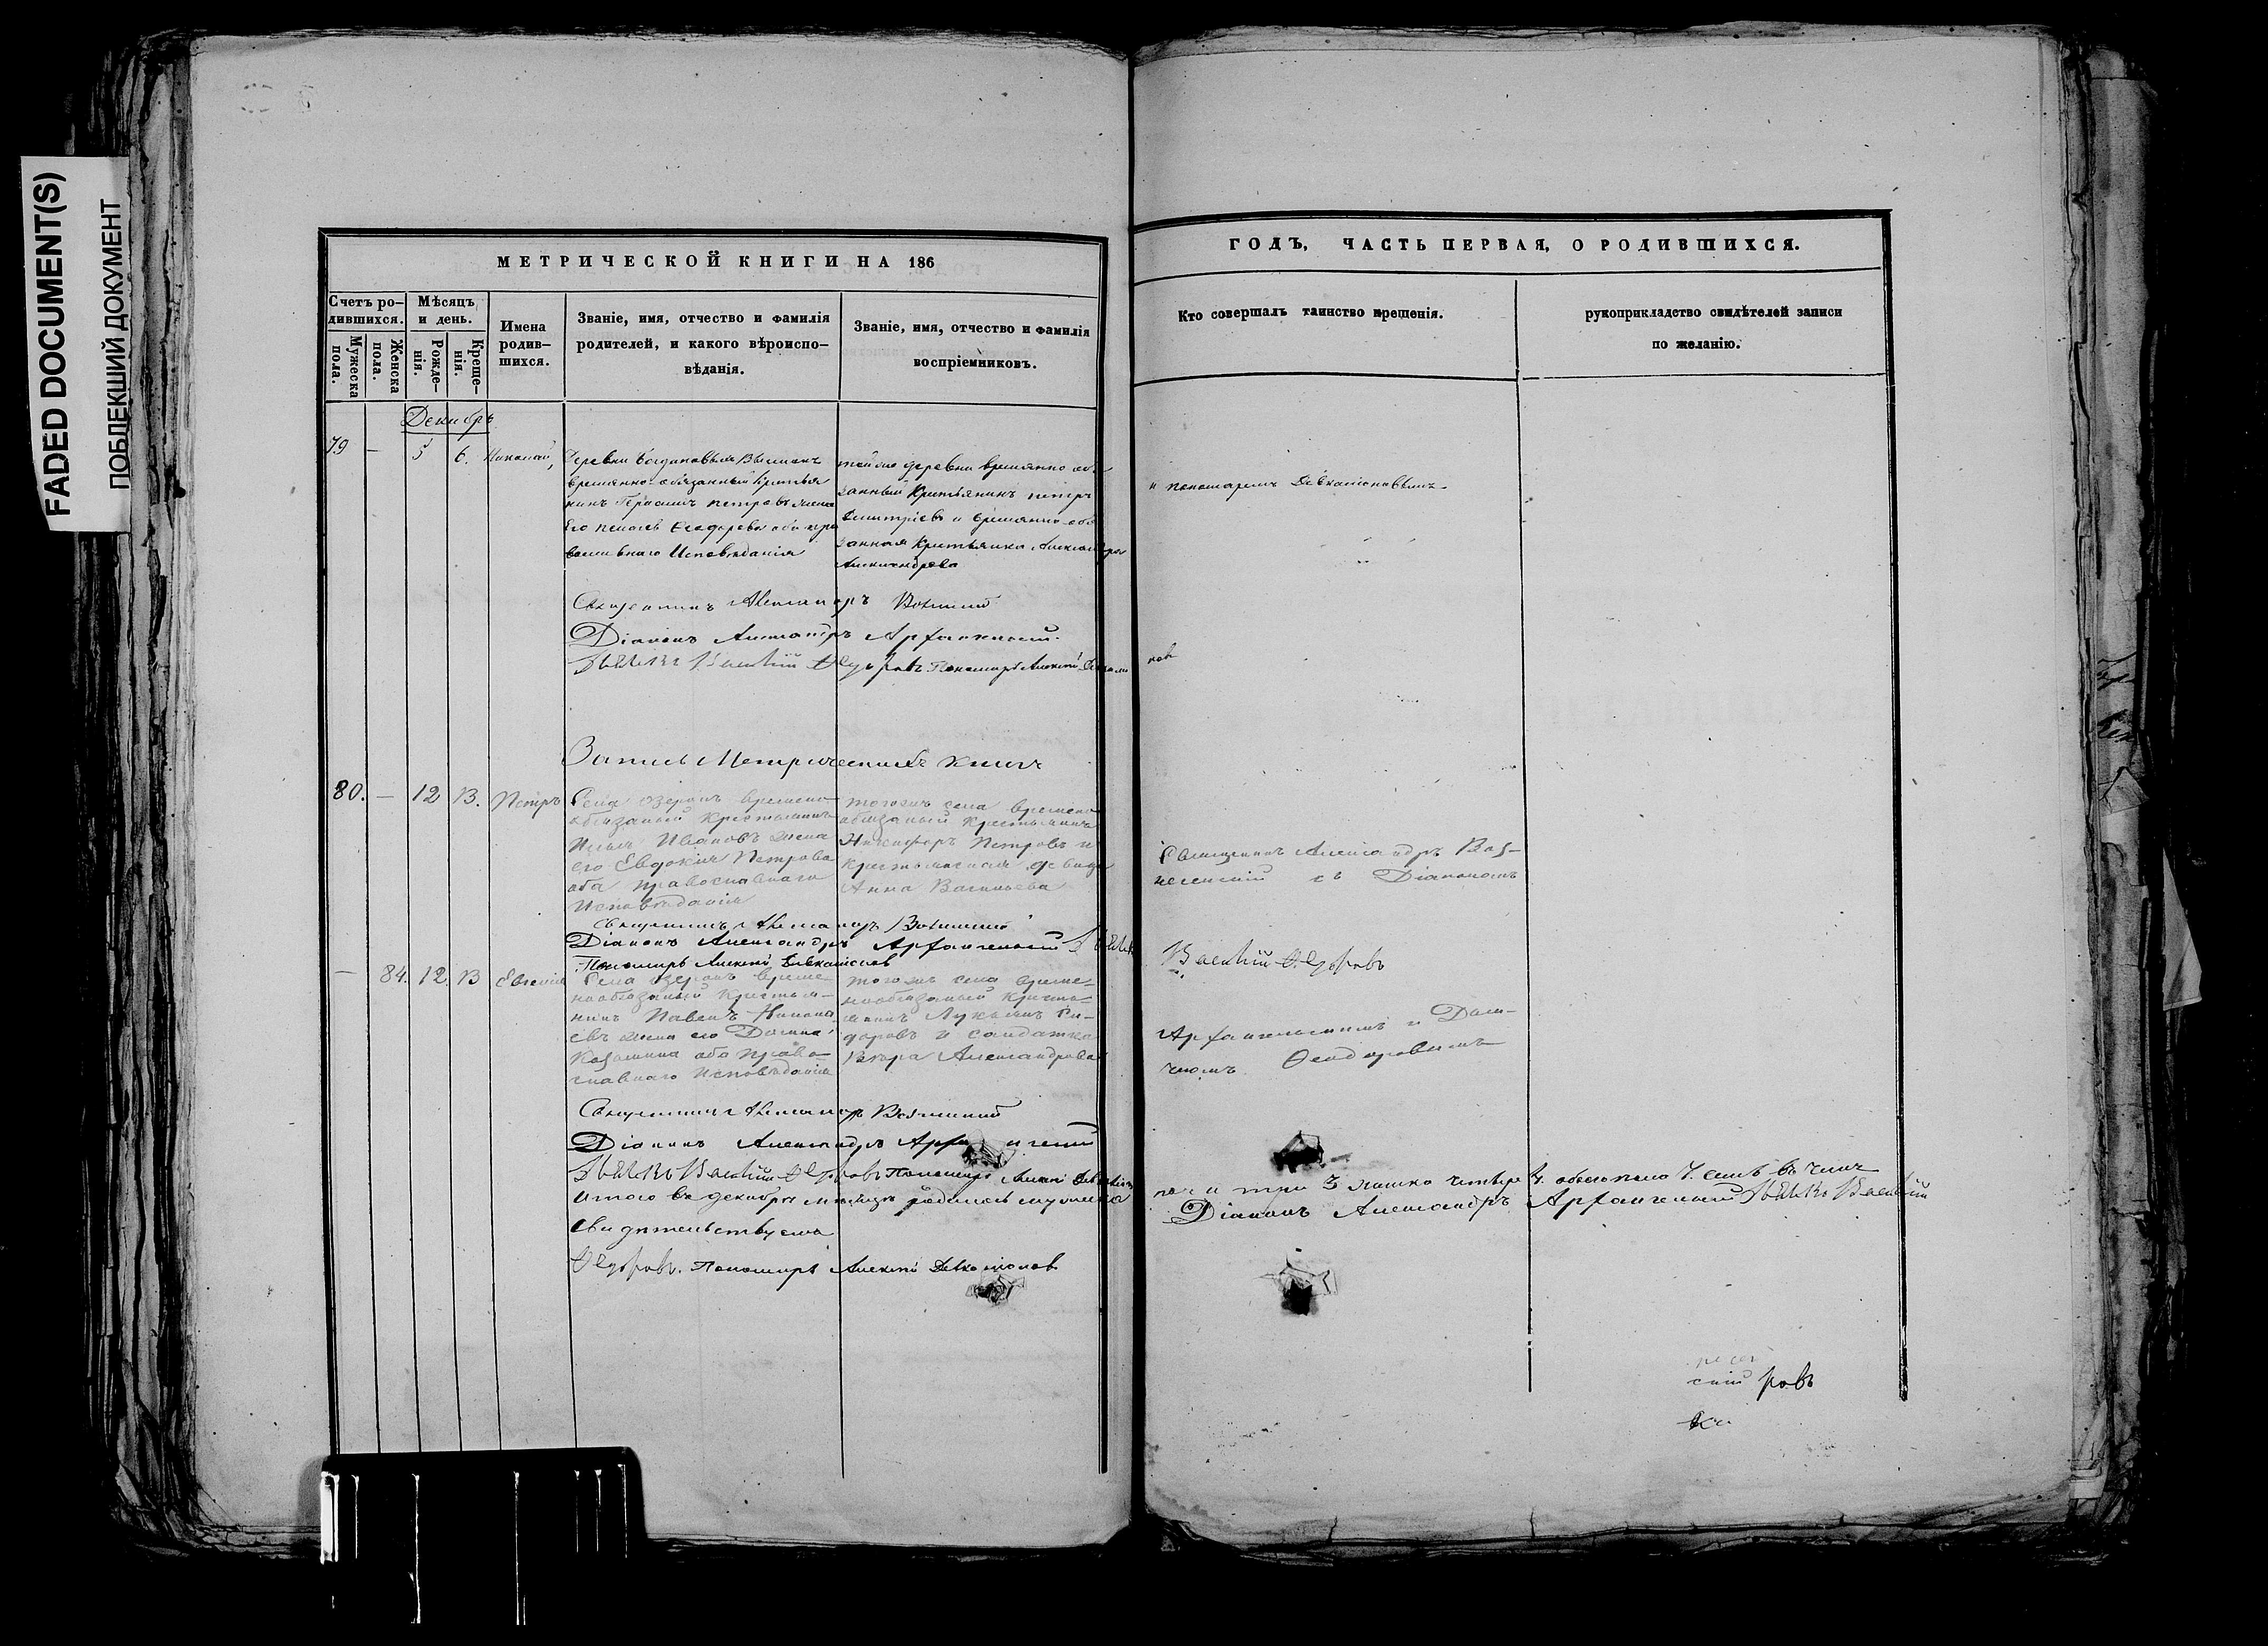 FADED DOCUMENT(S)
ПОБЛЕКШИЙ ДОКУМЕНТ
МЕТРИЧЕСКОЙ КНИГИ НА 186
Счетъ ро-
дившихся.
Мужеска
пола.
Женска
пола.
Мѣсяцъ
и день.
Рожде-
нія.
Креще-
нія.
Имена
родив-
шихся.
Званіе, имя, отчество и фамилія
родителей, и какого вѣроиспо-
вѣданія.
Званіе, имя, отчество и фамилія
воспріемниковъ.
Декабрь
79 — 5 6. Николай,
временно-обязанный крестья
нинъ Герасимъ Петровъ жена
его Феодорова оба пра
вославнаго Исповѣданія
тойже деревни временно обя
занный Крестьянинъ Петръ
Димитріевъ и временно-обя
занная Крестьянка Александра
Александрова
Священникъ Александръ
Діаконъ Александръ Архангельскій.
Дьячекъ Василій Ѳедоровъ Пономарь Алексѣй
Запись Метрическихъ книгъ
80. — 12 13. Петръ
Села Озерокъ временно
обязаный крестьянинъ
Ивановъ жена
его Евдокія Петрова
оба православнаго
Исповѣданія
тогожъ села временно
обязаный крестьянинъ
Никифоръ Петровъ и
крестьянская девица
Анна Васильева
Священникъ Александръ
Діаконъ Александръ Архангельскій
Пономарь Алексѣй
— 84. 12. 13 Евгенія
Села Озерокъ време-
ннообязаный крестья-
нинъ Павелъ
евъ жена его
оба право-
славнаго Исповѣданія
тогожъ села време-
ннообязаный кресть-
янинъ Лукьянъ Си-
доровъ и солдатка
Александрова
Священникъ Александръ
Діаконъ Александръ
Дьячекъ Василій Ѳедоровъ Пономарь Алексѣй
Итого въ декабрѣ мѣсяцѣ родилось мужеска
свидѣтельствуемъ
Ѳедоровъ. Пономарь Алексѣй
ГОДЪ, ЧАСТЬ ПЕРВАЯ, О РОДИВШИХСЯ.
Кто совершалъ таинство крещенія.
рукоприкладство свидѣтелей записи
по желанію.
и пономаремъ
новъ
Священникъ Александръ Воз-
несенскій съ Діакономъ
Василій Ѳедоровъ
Архангельскимъ и Дья-
чкомъ Феодоровымъ
пола три 3 женска четыре 4. обоего пола 7. семь въ чемъ
Діаконъ Александръ Архангельскій Дьячекъ Василій
несен
скій ровъ